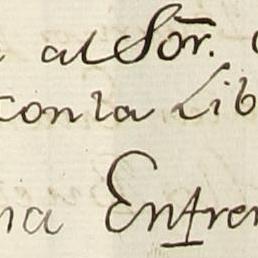 al Sor.
con la Lib
na Entre